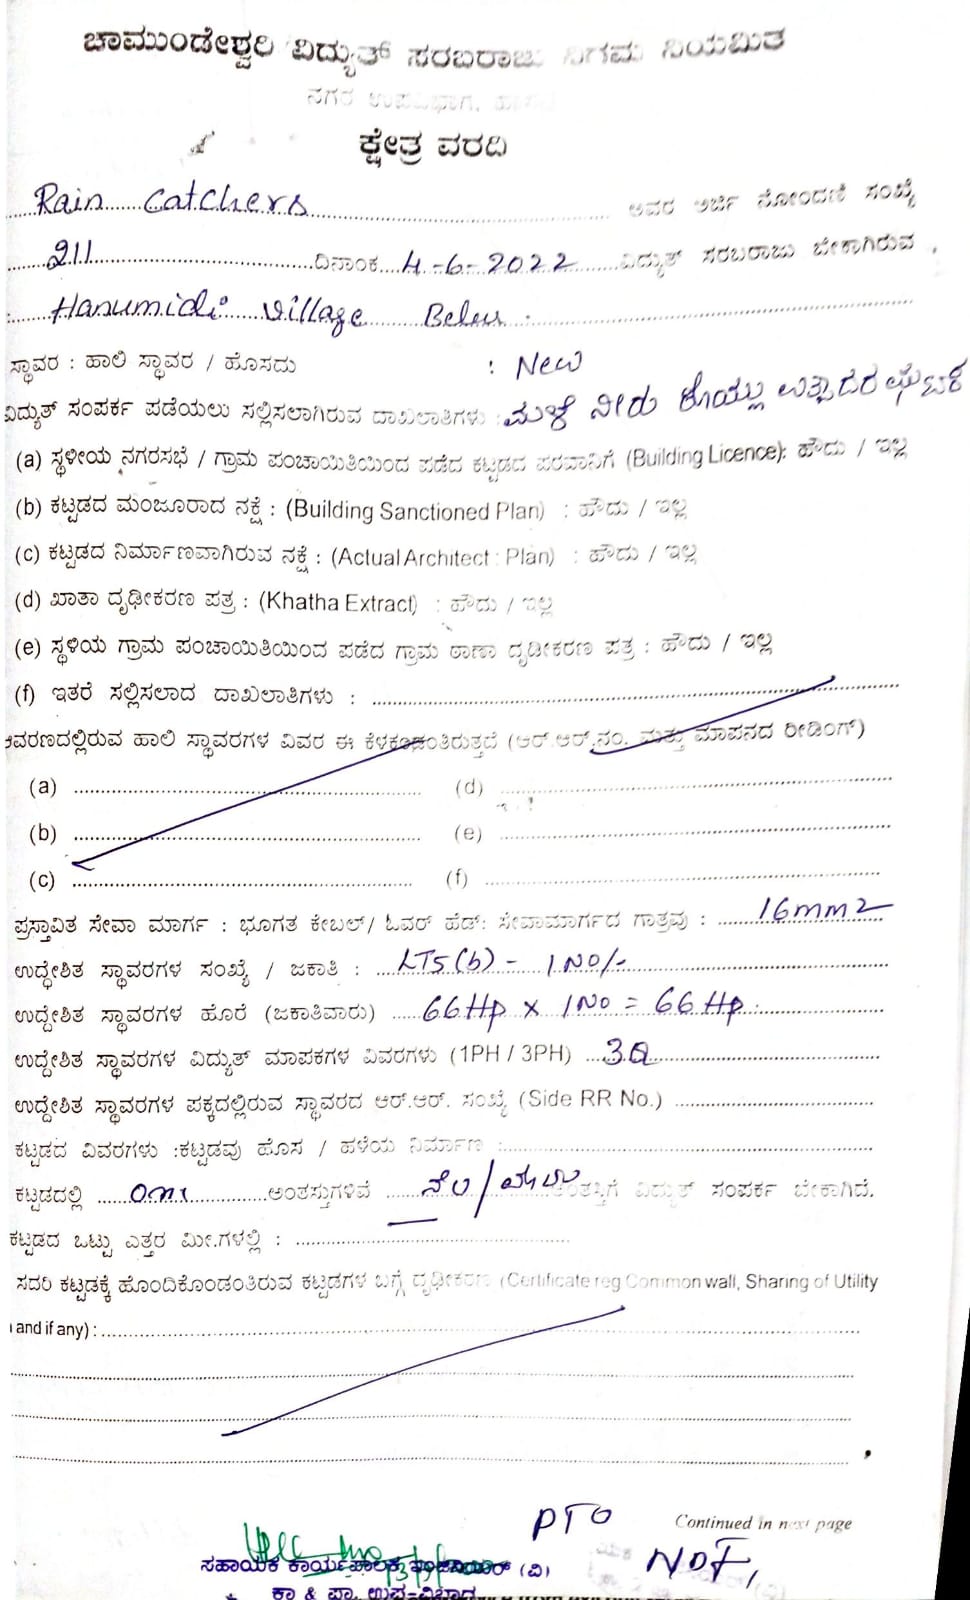 ಚಾಮುಂಡೇಶ್ವರಿ ವಿದ್ಯುತ್ ಸರಬರಾಜು ನಿಗಮ ನಿಯಮಿತ
ನಗರ ಉಪವಿಭಾಗ, ಹಾಸನ
ಕ್ಷೇತ್ರ ವರದಿ
Rain Catchers ಅವರ ಅರ್ಜಿ ನೋಂದಣಿ ಸಂಖ್ಯೆ
211 ದಿನಾಂಕ 4-6-2022 ವಿದ್ಯುತ್ ಸರಬರಾಜು ಬೇಕಾಗಿರುವ
Hanumidi village Belur.
ಸ್ಥಾವರ : ಹಾಲಿ ಸ್ಥಾವರ / ಹೊಸದು : New
ವಿದ್ಯುತ್ ಸಂಪರ್ಕ ಪಡೆಯಲು ಸಲ್ಲಿಸಲಾಗಿರುವ ದಾಖಲಾತಿಗಳು : ಮಳೆ ನೀರು ಕೊಯ್ಲು ಉತ್ಪಾದರ ಘಟಕ
(a) ಸ್ಥಳೀಯ ನಗರಸಭೆ / ಗ್ರಾಮ ಪಂಚಾಯಿತಿಯಿಂದ ಪಡೆದ ಕಟ್ಟಡದ ಪರವಾನಿಗೆ (Building Licence): ಹೌದು / ಇಲ್ಲ
(b) ಕಟ್ಟಡದ ಮಂಜೂರಾದ ನಕ್ಷೆ : (Building Sanctioned Plan) : ಹೌದು / ಇಲ್ಲ
(c) ಕಟ್ಟಡದ ನಿರ್ಮಾಣವಾಗಿರುವ ನಕ್ಷೆ : (Actual Architect : Plan) : ಹೌದು / ಇಲ್ಲ
(d) ಖಾತಾ ದೃಢೀಕರಣ ಪತ್ರ : (Khatha Extract) : ಹೌದು / ಇಲ್ಲ
(e) ಸ್ಥಳಿಯ ಗ್ರಾಮ ಪಂಚಾಯಿತಿಯಿಂದ ಪಡೆದ ಗ್ರಾಮ ಠಾಣಾ ದೃಡೀಕರಣ ಪತ್ರ : ಹೌದು / ಇಲ್ಲ
(f) ಇತರೆ ಸಲ್ಲಿಸಲಾದ ದಾಖಲಾತಿಗಳು :
ಆವರಣದಲ್ಲಿರುವ ಹಾಲಿ ಸ್ಥಾವರಗಳ ವಿವರ ಈ ಕೆಳಕಂಡಂತಿರುತ್ತದೆ (ಆರ್.ಆರ್.ನಂ. ಮತ್ತು ಮಾಪನದ ರೀಡಿಂಗ್)
(a) (d)
(b) (e)
(c) (f)
ಪ್ರಸ್ತಾವಿತ ಸೇವಾ ಮಾರ್ಗ : ಭೂಗತ ಕೇಬಲ್/ ಓವರ್ ಹೆಡ್: ಸೇವಾಮಾರ್ಗದ ಗಾತ್ರವು : 16mm2
ಉದ್ದೇಶಿತ ಸ್ಥಾವರಗಳ ಸಂಖ್ಯೆ / ಜಕಾತಿ : LT5(b) - 1 NO/-
ಉದ್ದೇಶಿತ ಸ್ಥಾವರಗಳ ಹೊರೆ (ಜಕಾತಿವಾರು) 66Hp x 1No = 66Hp.
ಉದ್ದೇಶಿತ ಸ್ಥಾವರಗಳ ವಿದ್ಯುತ್ ಮಾಪಕಗಳ ವಿವರಗಳು (1PH / 3PH)
ಉದ್ದೇಶಿತ ಸ್ಥಾವರಗಳ ಪಕ್ಕದಲ್ಲಿರುವ ಸ್ಥಾವರದ ಆರ್.ಆರ್. ಸಂಖ್ಯೆ (Side RR No.)
ಕಟ್ಟಡದ ವಿವರಗಳು :ಕಟ್ಟಡವು ಹೊಸ / ಹಳೆಯ ನಿರ್ಮಾಣ :
ಕಟ್ಟಡದಲ್ಲಿ ಅಂತಸ್ತುಗಳಿವೆ ನೆಲ / ಅಂತಸ್ತಿಗೆ ವಿದ್ಯುತ್ ಸಂಪರ್ಕ ಬೇಕಾಗಿದೆ.
ಕಟ್ಟಡದ ಒಟ್ಟು ಎತ್ತರ ಮೀ.ಗಳಲ್ಲಿ :
ಸದರಿ ಕಟ್ಟಡಕ್ಕೆ ಹೊಂದಿಕೊಂಡಂತಿರುವ ಕಟ್ಟಡಗಳ ಬಗ್ಗೆ ದೃಢೀಕರಣ (Certificate reg Common wall, Sharing of Utility
and if any) :
PTO Continued in next page
ಸಹಾಯಕ ಕಾರ್ಯಪಾಲಕ ಇಂಜಿನಿಯರ್ (ವಿ) NOF,
ಕಾ & ಪಾ ಉಪ-ವಿಭಾಗ